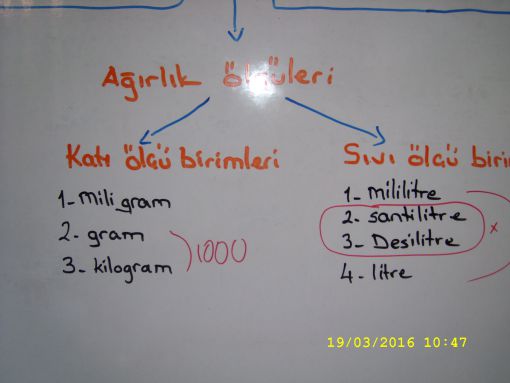 Ağırlık ölçüleri
Katı ölçü birimleri
1- mili gram
2- gram
3- kilogram
1000
Sıvı ölçü
1- mililitre
2- santilitre
3- Desilitre
4- litre
x
19/03/2016 10:47